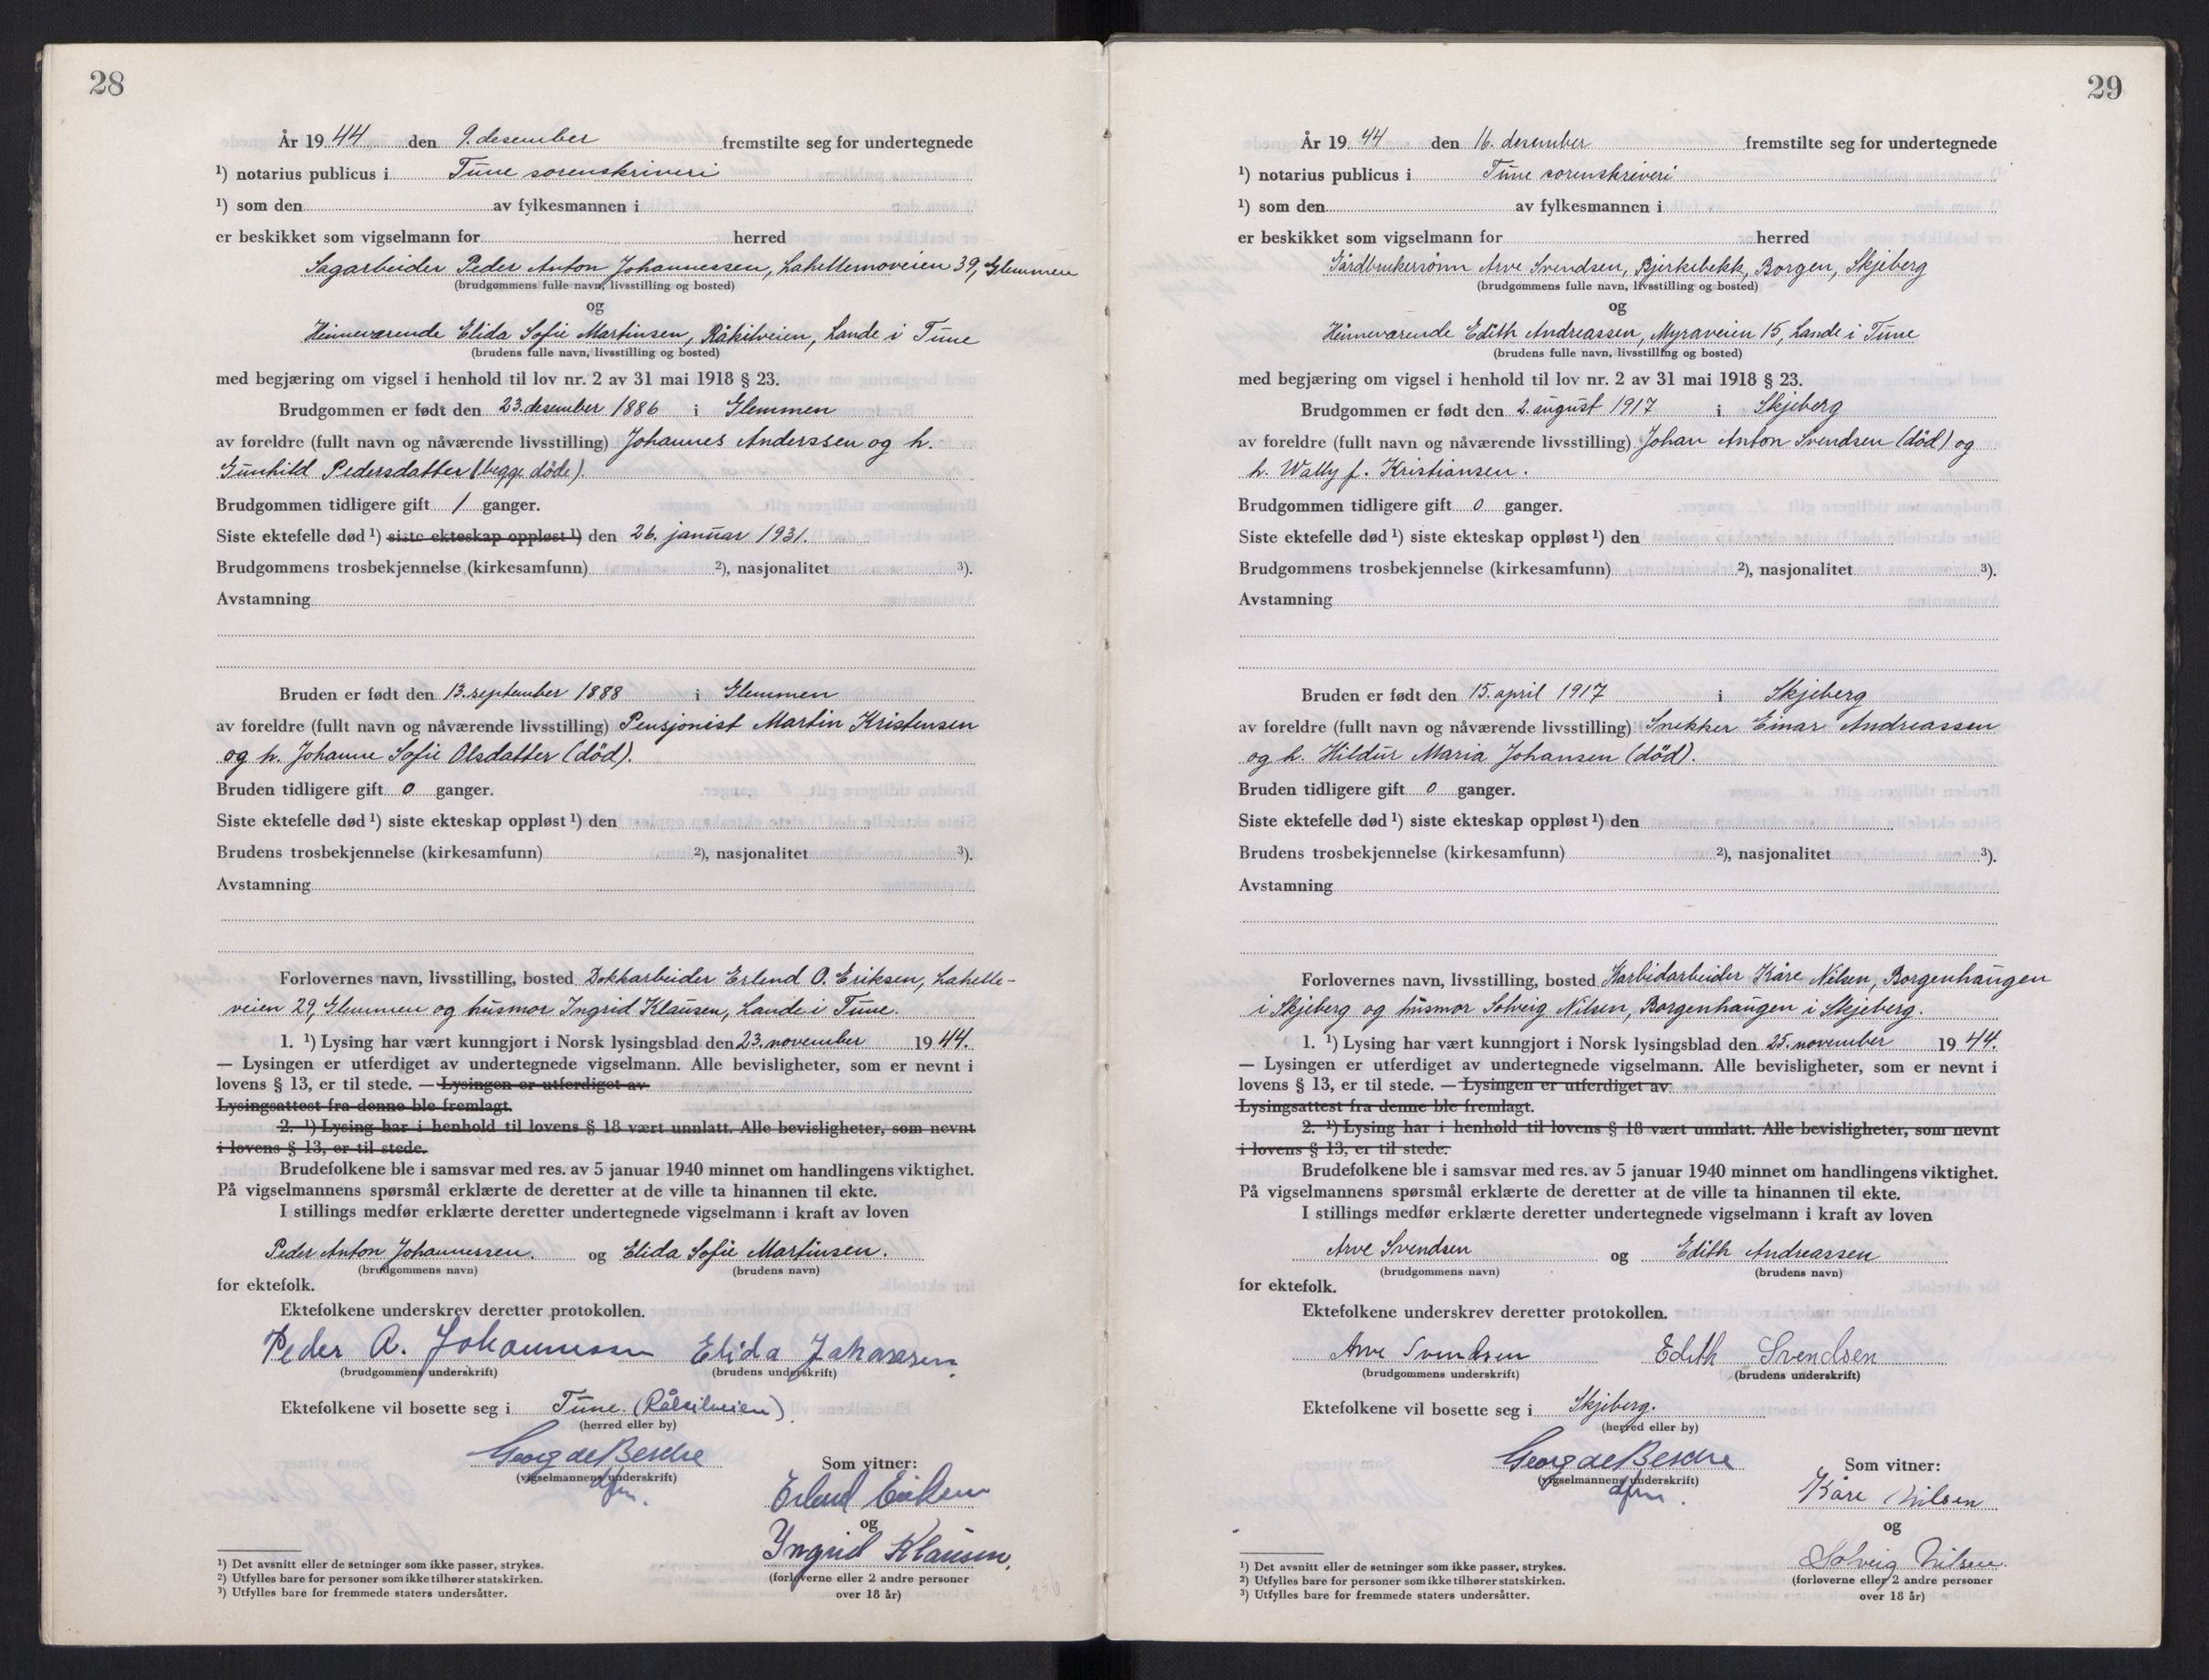 28
År 19 44 den 9. desember fremstilte seg for undertegnede
¹) notarius publicus i Tune sorenskriveri
¹) som den av fylkesmannen i
er beskikket som vigselmann for herred
Sagarbeider Peder Anton Johannessen, Lahellemoveien 39, Glemmen
(brudgommens fulle navn, livsstilling og bosted)
og
Heimeværende Elida Sofie Martinsen, Råkilveien, Lande i Tune
(brudens fulle navn, livsstilling og bosted)
med begjæring om vigsel i henhold til lov nr. 2 av 31 mai 1918 § 23.
Brudgommen er født den 23. desember 1886 i Glemmen
av foreldre (fullt navn og nåværende livsstilling) Johannes Anderssen og h.
Gunhild Pedersdatter (begge døde).
Brudgommen tidligere gift 1 ganger.
Siste ektefelle død ¹) siste ekteskap oppløst ¹) den 26. januar 1931.
Brudgommens trosbekjennelse (kirkesamfunn) ²), nasjonalitet ³).
Avstamning
Bruden er født den 13. september 1888 i Glemmen
av foreldre (fullt navn og nåværende livsstilling) Pensjonist Martin Kristensen
og h. Johanne Sofie Olsdatter (död).
Bruden tidligere gift 0 ganger.
Siste ektefelle død ¹) siste ekteskap oppløst ¹) den
Brudens trosbekjennelse (kirkesamfunn) ²), nasjonalitet ³).
Avstamning
Forlovernes navn, livsstilling, bosted Dokkarbeider Erlend O. Eriksen, Lahelle-
veien 29, Glemmen og husmor Ingrid Klausen, Lande i Tune.
1. ¹) Lysing har vært kunngjort i Norsk lysingsblad den 23. november 19 44.
— Lysingen er utferdiget av undertegnede vigselmann. Alle bevisligheter, som er nevnt i
lovens § 13, er til stede. — Lysingen er utferdiget av
Lysingsattest fra denne ble fremlagt.
2. ¹) Lysing har i henhold til lovens § 18 vært unnlatt. Alle bevisligheter, som nevnt
i lovens § 13, er til stede.
Brudefolkene ble i samsvar med res. av 5 januar 1940 minnet om handlingens viktighet.
På vigselmannens spørsmål erklærte de deretter at de ville ta hinannen til ekte.
I stillings medfør erklærte deretter undertegnede vigselmann i kraft av loven
Peder Anton Johannessen. og Elida Sofie Martinsen.
(brudgommens navn) (brudens navn)
for ektefolk.
Ektefolkene underskrev deretter protokollen.
Peder A. Johannessen Elida Johansen.
(brudgommens underskrift) (brudens underskrift)
Ektefolkene vil bosette seg i Tune. (Råkilveien)
(herred eller by)
Georg de Besche
(vigselmannens underskrift)
dfm.
Som vitner:
Erlend Eriksen
og
Yngrid Klausen,
(forloverne eller 2 andre personer
over 18 år)
¹) Det avsnitt eller de setninger som ikke passer, strykes.
²) Utfylles bare for personer som ikke tilhører statskirken.
³) Utfylles bare for fremmede staters undersåtter.
29
År 19 44 den 16. desember fremstilte seg for undertegnede
¹) notarius publicus i Tune sorenskriveri
¹) som den av fylkesmannen i
er beskikket som vigselmann for herred
Gårdbrukersönn Arve Svendsen, Bjerkebekk, Borgen, Skjeberg
(brudgommens fulle navn, livsstilling og bosted)
og
Heimeværende Edith Andreassen, Myraveien 15, Lande i Tune
(brudens fulle navn, livsstilling og bosted)
med begjæring om vigsel i henhold til lov nr. 2 av 31 mai 1918 § 23.
Brudgommen er født den 2. august 1917 i Skjeberg
av foreldre (fullt navn og nåværende livsstilling) Johan Anton Svendsen (död) og
h. Wally f. Kristiansen.
Brudgommen tidligere gift 0 ganger.
Siste ektefelle død ¹) siste ekteskap oppløst ¹) den
Brudgommens trosbekjennelse (kirkesamfunn) ²), nasjonalitet ³).
Avstamning
Bruden er født den 15. april 1917 i Skjeberg
av foreldre (fullt navn og nåværende livsstilling) Snekker Einar Andreassen
og h. Hildur Maria Johansen (död).
Bruden tidligere gift 0 ganger.
Siste ektefelle død ¹) siste ekteskap oppløst ¹) den
Brudens trosbekjennelse (kirkesamfunn) ²), nasjonalitet ³).
Avstamning
Forlovernes navn, livsstilling, bosted Karbidarbeider Kåre Nilsen, Borgenhaugen
i Skjeberg og husmor Solveig Nilsen, Borgenhaugen i Skjeberg.
1. ¹) Lysing har vært kunngjort i Norsk lysingsblad den 25. november 19 44.
— Lysingen er utferdiget av undertegnede vigselmann. Alle bevisligheter, som er nevnt i
lovens § 13, er til stede. — Lysingen er utferdiget av
Lysingsattest fra denne ble fremlagt.
2. ¹) Lysing har i henhold til lovens § 18 vært unnlatt. Alle bevisligheter, som nevnt
i lovens § 13, er til stede.
Brudefolkene ble i samsvar med res. av 5 januar 1940 minnet om handlingens viktighet.
På vigselmannens spørsmål erklærte de deretter at de ville ta hinannen til ekte.
I stillings medfør erklærte deretter undertegnede vigselmann i kraft av loven
Arve Svendsen og Edith Andreassen
(brudgommens navn) (brudens navn)
for ektefolk.
Ektefolkene underskrev deretter protokollen.
Arve Svendsen Edith Svendsen
(brudgommens underskrift) (brudens underskrift)
Ektefolkene vil bosette seg i Skjeberg.
(herred eller by)
Georg de Besche
(vigselmannens underskrift)
dfm.
Som vitner:
Kåre Nilsen
og
Solveig Nilsen.
(forloverne eller 2 andre personer
over 18 år)
¹) Det avsnitt eller de setninger som ikke passer, strykes.
²) Utfylles bare for personer som ikke tilhører statskirken.
³) Utfylles bare for fremmede staters undersåtter.